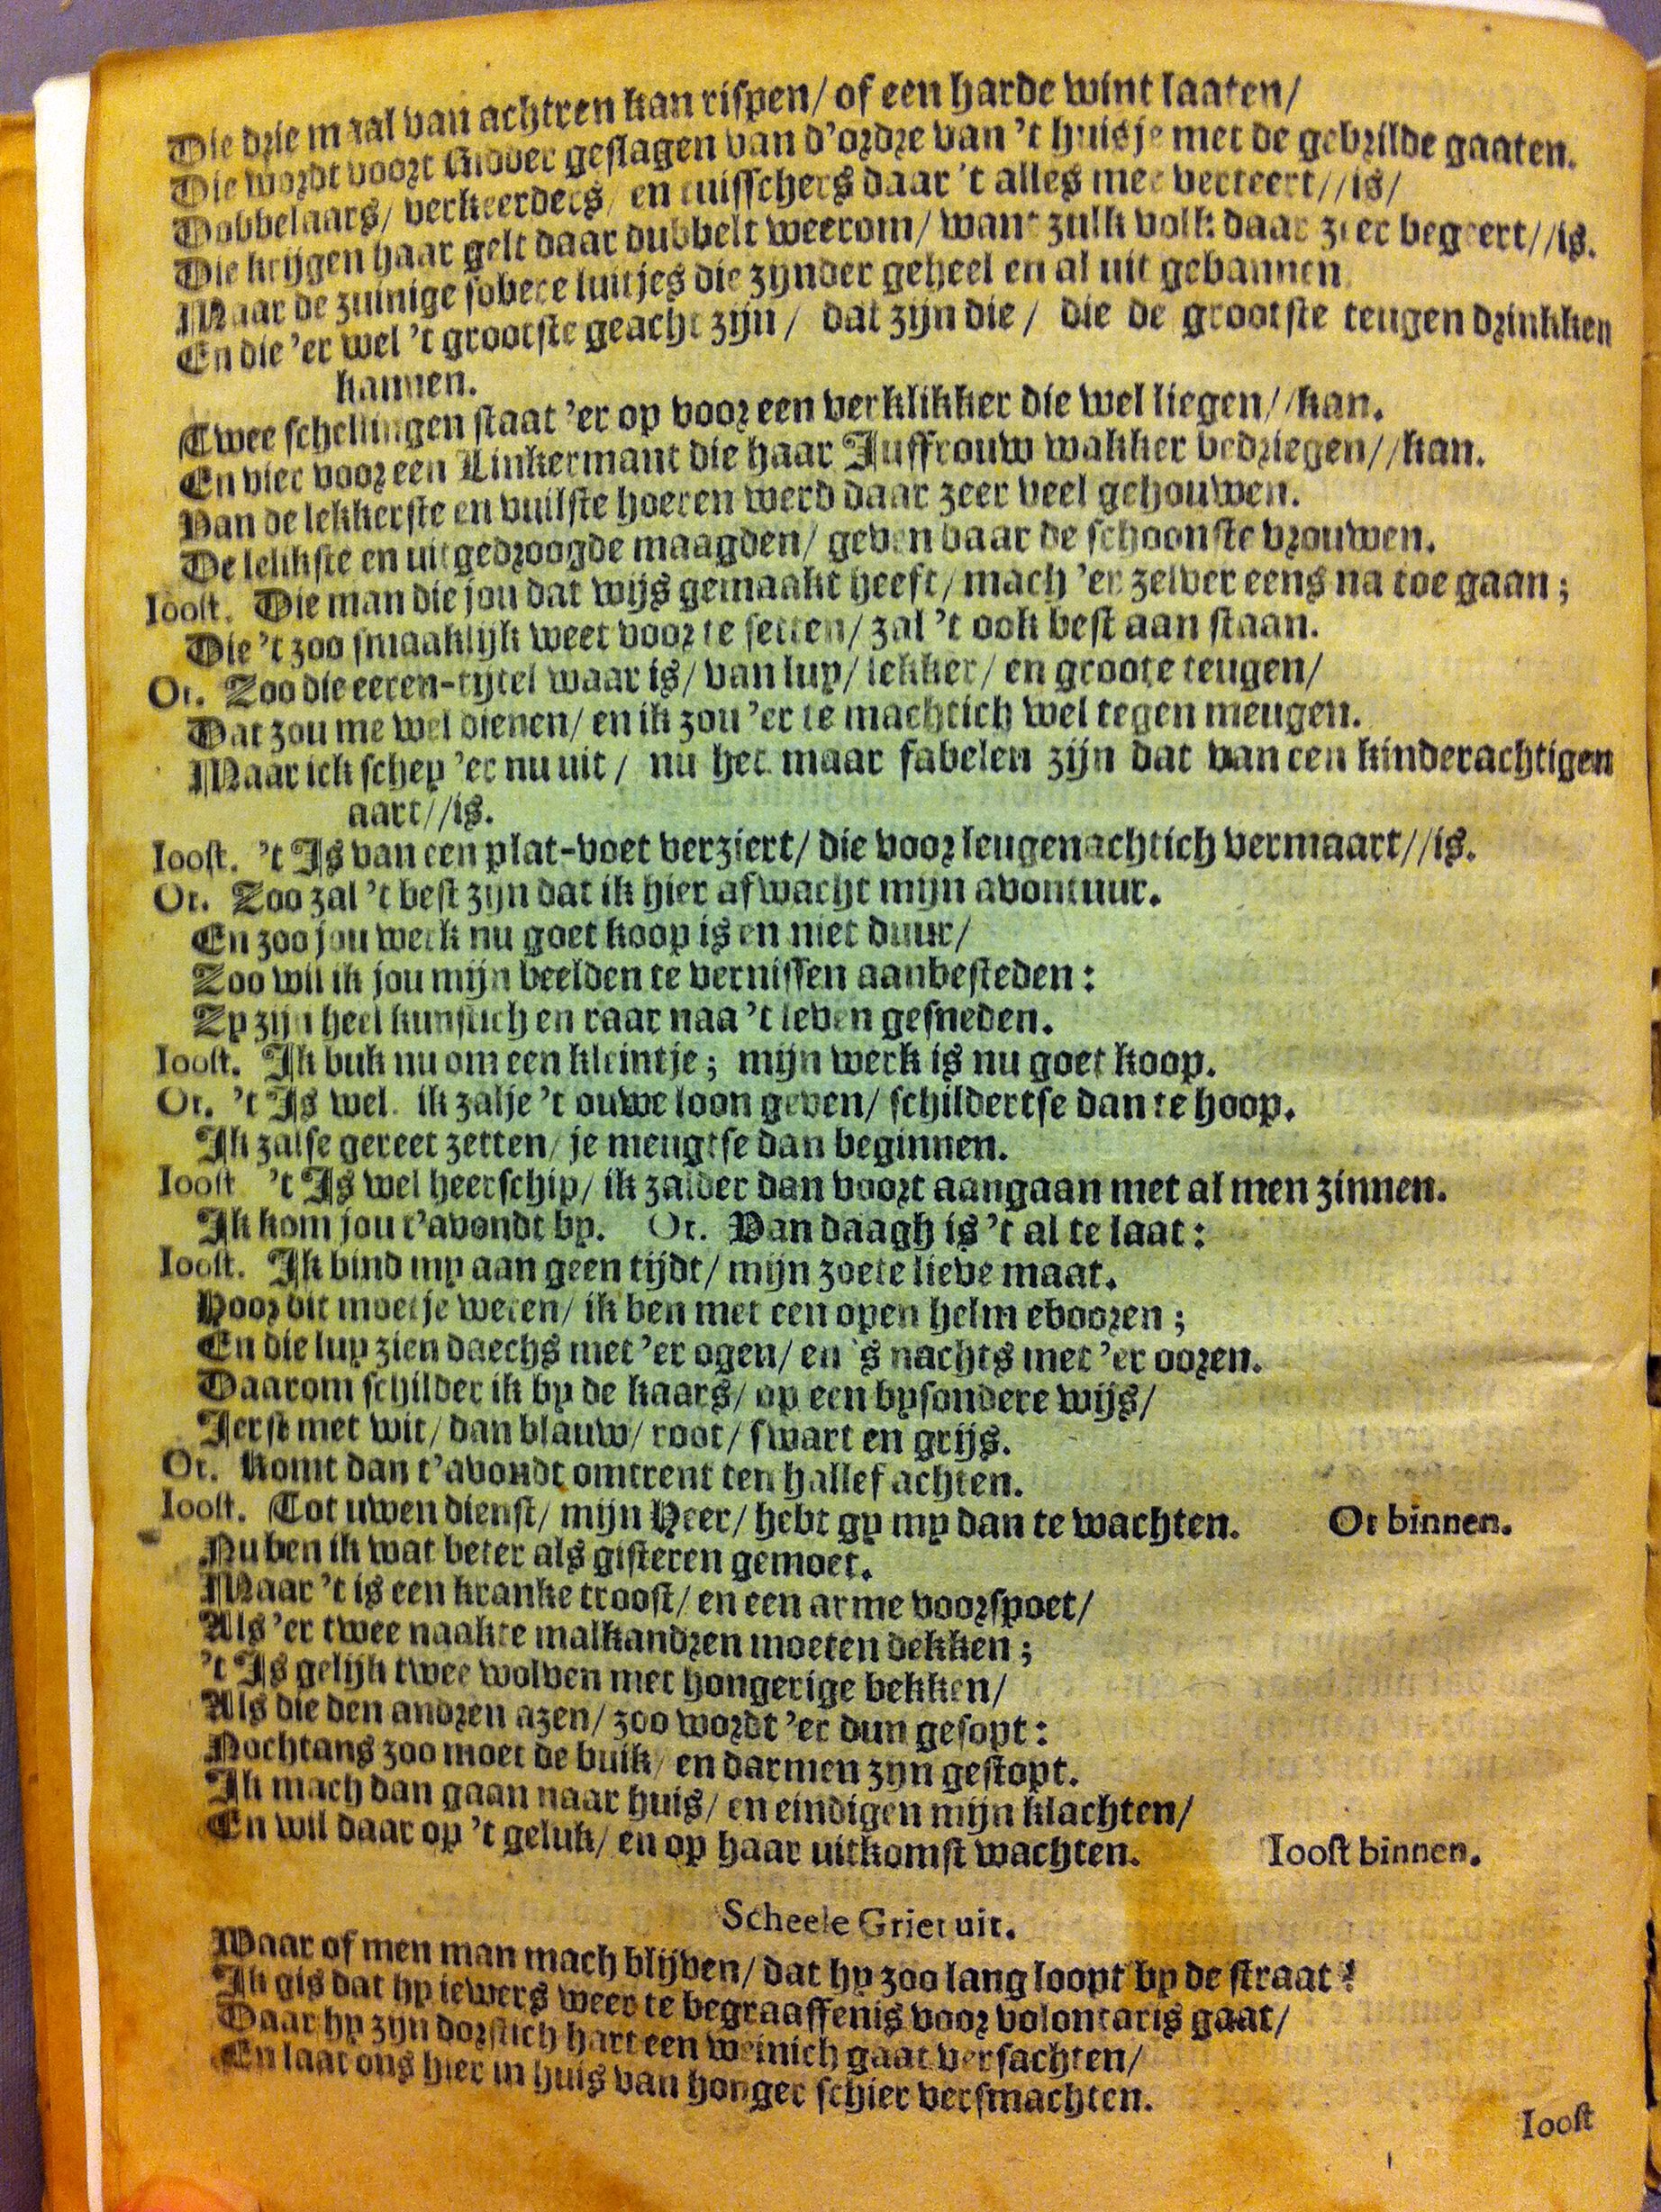 Die drie maal van achtren kan rispen/ of een harde wint laaten/
Die wordt voort Ridder geslagen van d'ordre van 't huisje met de gebrilde gaaten.
Dobbelaars/ verkeerders/ en tuisschers daar 't alles mee verteert//is/
Die krijgen haar gelt daar dubbelt weerom/ want zulk volk daar zeer begeert//is.
Maar de zuinige sobere luitjes die zijnder geheel en al uit gebannen
En die 'er wel 't grootste geacht zijn/ dat zijn die/ die de grootste teugen drinkken
kannen.
Twee schellingen staat 'er op voor een verklikker die wel liegen//kan.
En vier voor een Linkermant die haar Juffrouw wakker bedriegen//kan.
Van de lekkerste en vuilste hoeren werd daar zeer veel gehouwen.
De lelikste en uitgedroogde maagden/ geven daar de schoonste vrouwen.
Ioost. Die man die jou dat wijs gemaakt heeft/ mach 'er zelver eens na toe gaan;
Die 't zoo smaaklijk weet voor te setten/ zal 't ook best aan staan.
Or. Zoo die eeren-tijtel waar is/ van luy/ lekker/ en groote teugen/
Dat zou me wel dienen/ en ik zou 'er te machtich wel tegen meugen.
Maar ick schey 'er nu uit/ nu het maar fabelen zijn dat van een kinderachtigen
aart//is.
Ioost. 't Is van een plat-voet verziert/ die voor leugenachtich vermaart//is.
Or. Zoo zal 't best zijn dat ik hier afwacht mijn avontuur.
En zoo jou werk nu goet koop is en niet duur/
Zoo wil ik jou mijn beelden te vernissen aanbesteden:
Zy zijn heel kunstich en raar naa 't leven gesneden.
Ioost. Ik buk nu om een kleintje; mijn werk is nu goet koop.
Or. 't Is wel. ik zalje 't ouwe loon geven/ schildertse dan te hoop.
Ik zalse gereet zetten/ je meugtse dan beginnen.
Ioost 't Is wel heerschip/ ik zalder dan voort aangaan met al men zinnen.
Ik kom jou t'avondt by. Or. Van daagh is 't al te laat:
Ioost. Ik bind my aan geen tijdt/ mijn zoete lieve maat.
Voor dit moetje weten/ ik ben met een open helm eboren;
En die luy zien daechs met 'er ogen/ en 's nachts met 'er ooren.
Daarom schilder ik by de kaars/ op een bysondere wijs/
Ierst met wit/ dan blauw/ root/ swart en grijs.
Or. Komt dan t'avondt omtrent ten hallef achten.
Ioost. Tot uwen dienst/ mijn Heer/ hebt gy my dan te wachten. Or binnen.
Nu ben ik wat beter als gisteren gemoet.
Maar 't is een kranke troost/ en een arme voorspoet/
Als 'er twee naakte malkandren moeten dekken;
't Is gelijk twee wolven met hongerige bekken/
Als die den andren azen/ zoo wordt 'er dun gesopt:
Nochtans zoo moet de buik/ en darmen zyn gestopt.
Ik mach dan gaan naar huis/ en eindigen mijn klachten/
En wil daar op 't geluk/ en op haar uitkomst wachten. Ioost binnen.
Scheele Griet uit.
Waar of men man mach blijven/ dat hy zoo lang loopt by de straat?
Ik gis dat hy iewers weer te begraaffenis voor volontaris gaat/
Daar hy zyn dorstich hart een weinich gaat versachten/
En laat ons hier in huis van honger schier versmachten.
Ioost